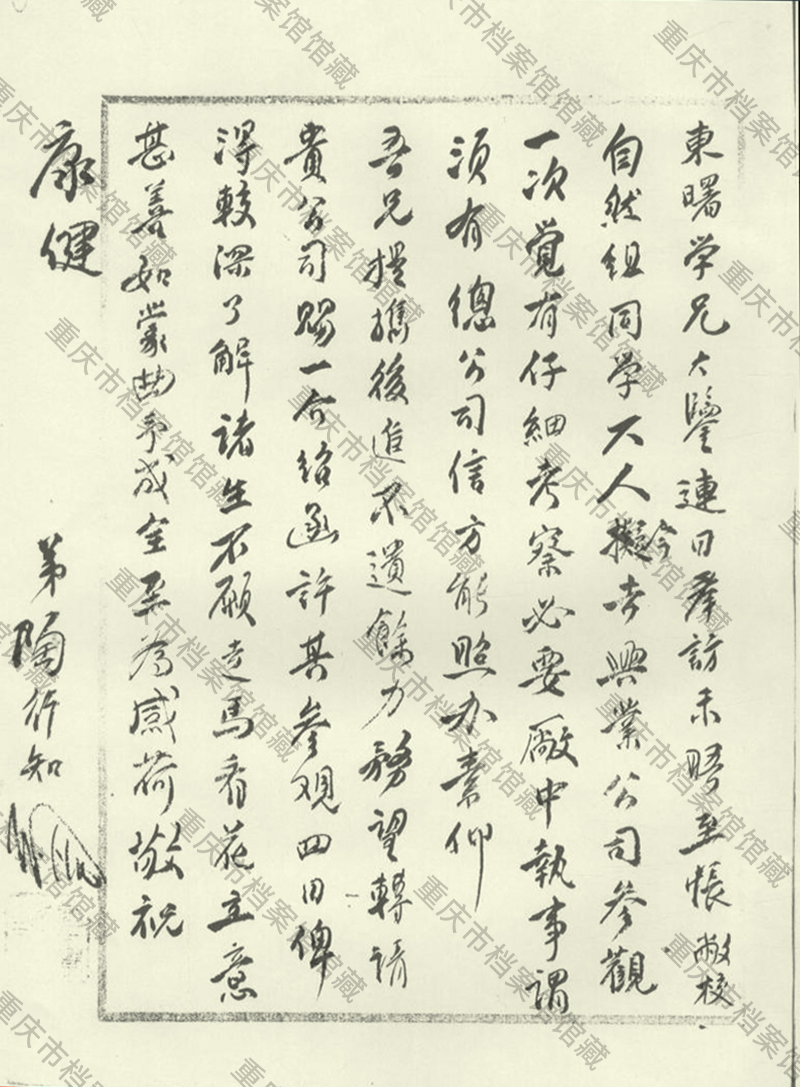 東曙学兄大鑒連日奉訪未晤至悵敝校
自然组同学六人今去興業公司参觀
一次覺有仔細考察必要廠中執事謂
須有總公司信方能照办素仰
吾兄提攜後進不遺餘力務望轉請
貴公司賜一介绍函許其参观四日俾
淂較深了解諸生不願走馬看花立意
甚善如蒙曲予成全至為感荷敬祝
康健
弟陶行知
重庆市档案馆馆藏